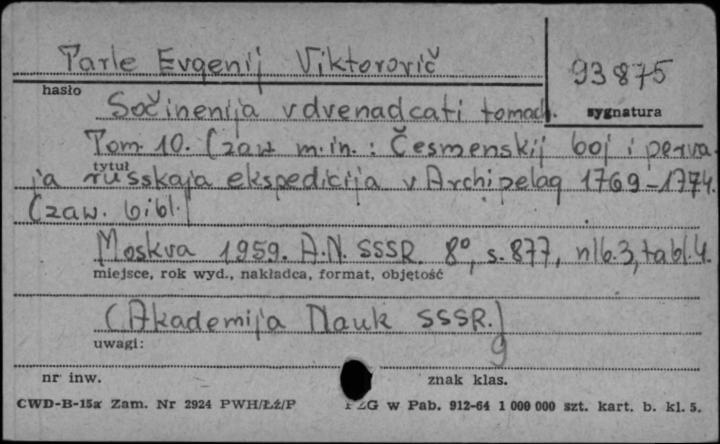 Tarle Evgenij Viktorovič
93875
hasło
sygnatura
Sočinenija v dvenadcati tomach.
Tom 10. (zaw m.in.: Česmenskij boj i perva-
tytuł
ja russkaja ekspedicija v Archipelag 1769-1774.
(zaw. bibl.)
Moskva 1959. A.N. SSSR. 8º, s. 877, nlb. 3, tabl. 4.
miejsce, rok wyd., nakładca, format, objętość
(Akademija Nauk SSSR.)
uwagi:
9
nr inw.
znak klas.
CWD-B-15a Zam. Nr 2924 PWH/Łź/P
ZG w Pab. 912-64 1 000 000 szt. kart. b. kl. 5.